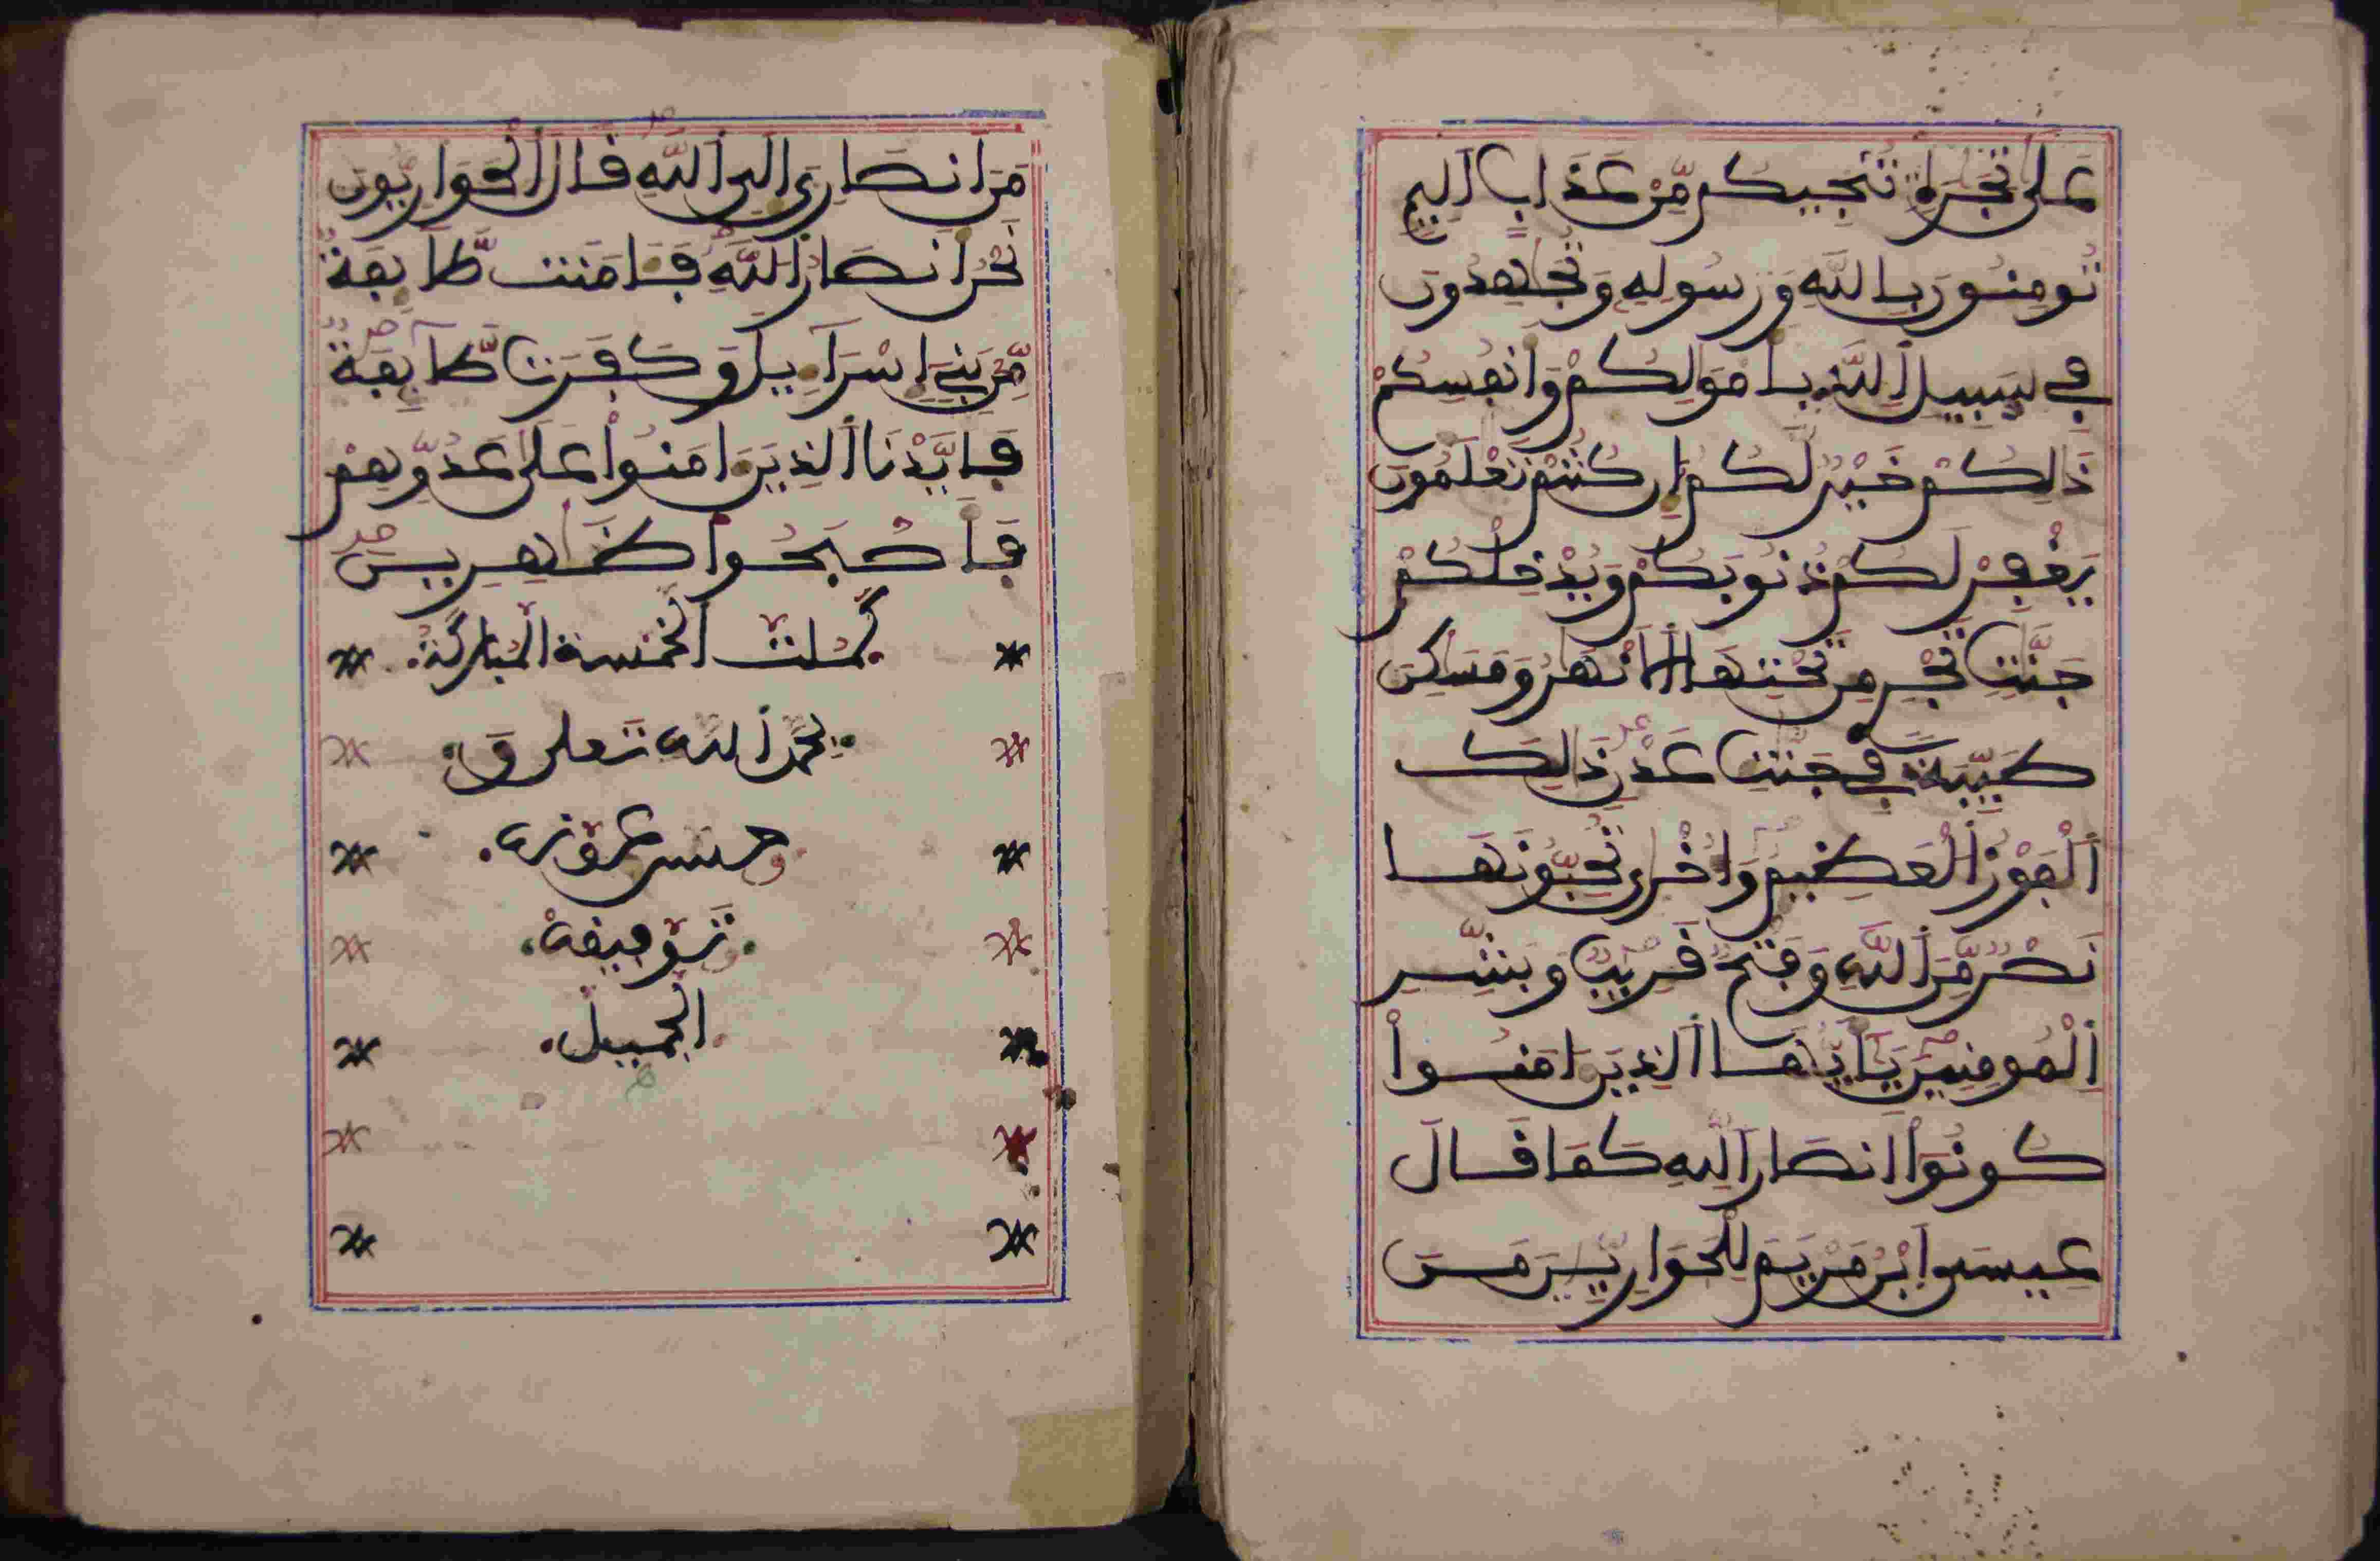 عَلَىٰ تِجَٰرَةٖ تُنجِيكُم مِّنْ عَذَابٍ اَلِيمٖ
تُومِنُونَ بِاللَّهِ وَرَسُولِهِ وَتُجَٰهِدُونَ
فِے سَبِيلِ اِللَّهِ بِأَمْوَٰلِكُمْ وَأَنفُسِكُمْ
ذَٰلِكُمْ خَيْرٞ لَّكُمُ إِن كُنتُمْ تَعْلَمُونَ
يَغْفِرْ لَكُمْ ذُنُوبَكُمْ وَيُدْخِلْكُمْ
جَنَّٰتٖ تَجْرِے مِن تَحْتِهَا اَلَانْهَٰرُ وَمَسَٰكِنَ
طَيِّبَةٗ فِے جَنَّٰتِ عَدْنٖ ذَٰلِكَ
اَلْفَوْزُ اَلْعَظِيمُ وَأُخْرَىٰ تُحِبُّونَهَا
نَصْرٞ مِّنَ اَللَّهِ وَفَتْحٞ قَرِيبٞ وَبَشِّرِ
اِلْمُومِنِينَ يَٰأَيُّهَا اَلذِينَ ءَامَنُواْ
كُونُواْ أَنصَارَ اَللَّهِ كَمَا قَالَ
عِيسَى اَبْنُ مَرْيَمَ لِلْحَوَارِيِّينَ مَنَ
مَنَ اَنصَارِيَ إِلَى اَللَّهِ قَالَ اَلْحَوَارِيُّونَ
نَحْنُ أَنصَارُ اُللَّهِ فَـَٔامَنَت طَّآئِفَةٞ
مِّنۢ بَنِےٓ إِسْرَآءِيلَ وَكَفَرَت طَّآئِفَةٞ
فَأَيَّدْنَا اَلذِينَ ءَامَنُواْ عَلَىٰ عَدُوِّهِمْ
فَأَصْبَحُواْ ظَٰهِرِينَ
كملت الخمسة المباركة
بحمد الله تعلى و
حسن عونه
توفيقه
الجميل